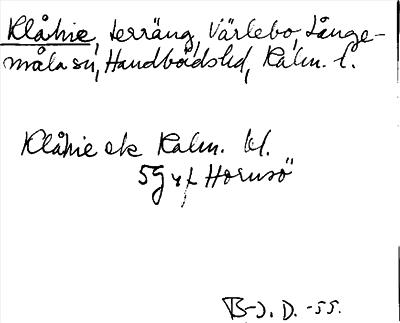 Klåhie, terräng, Värlebo, Långe-
måla sn, Handbörds hd, Kalm. l.
Klåhie ek Kalm. bl.
5G v f Hornsö
B-J. D. -55.